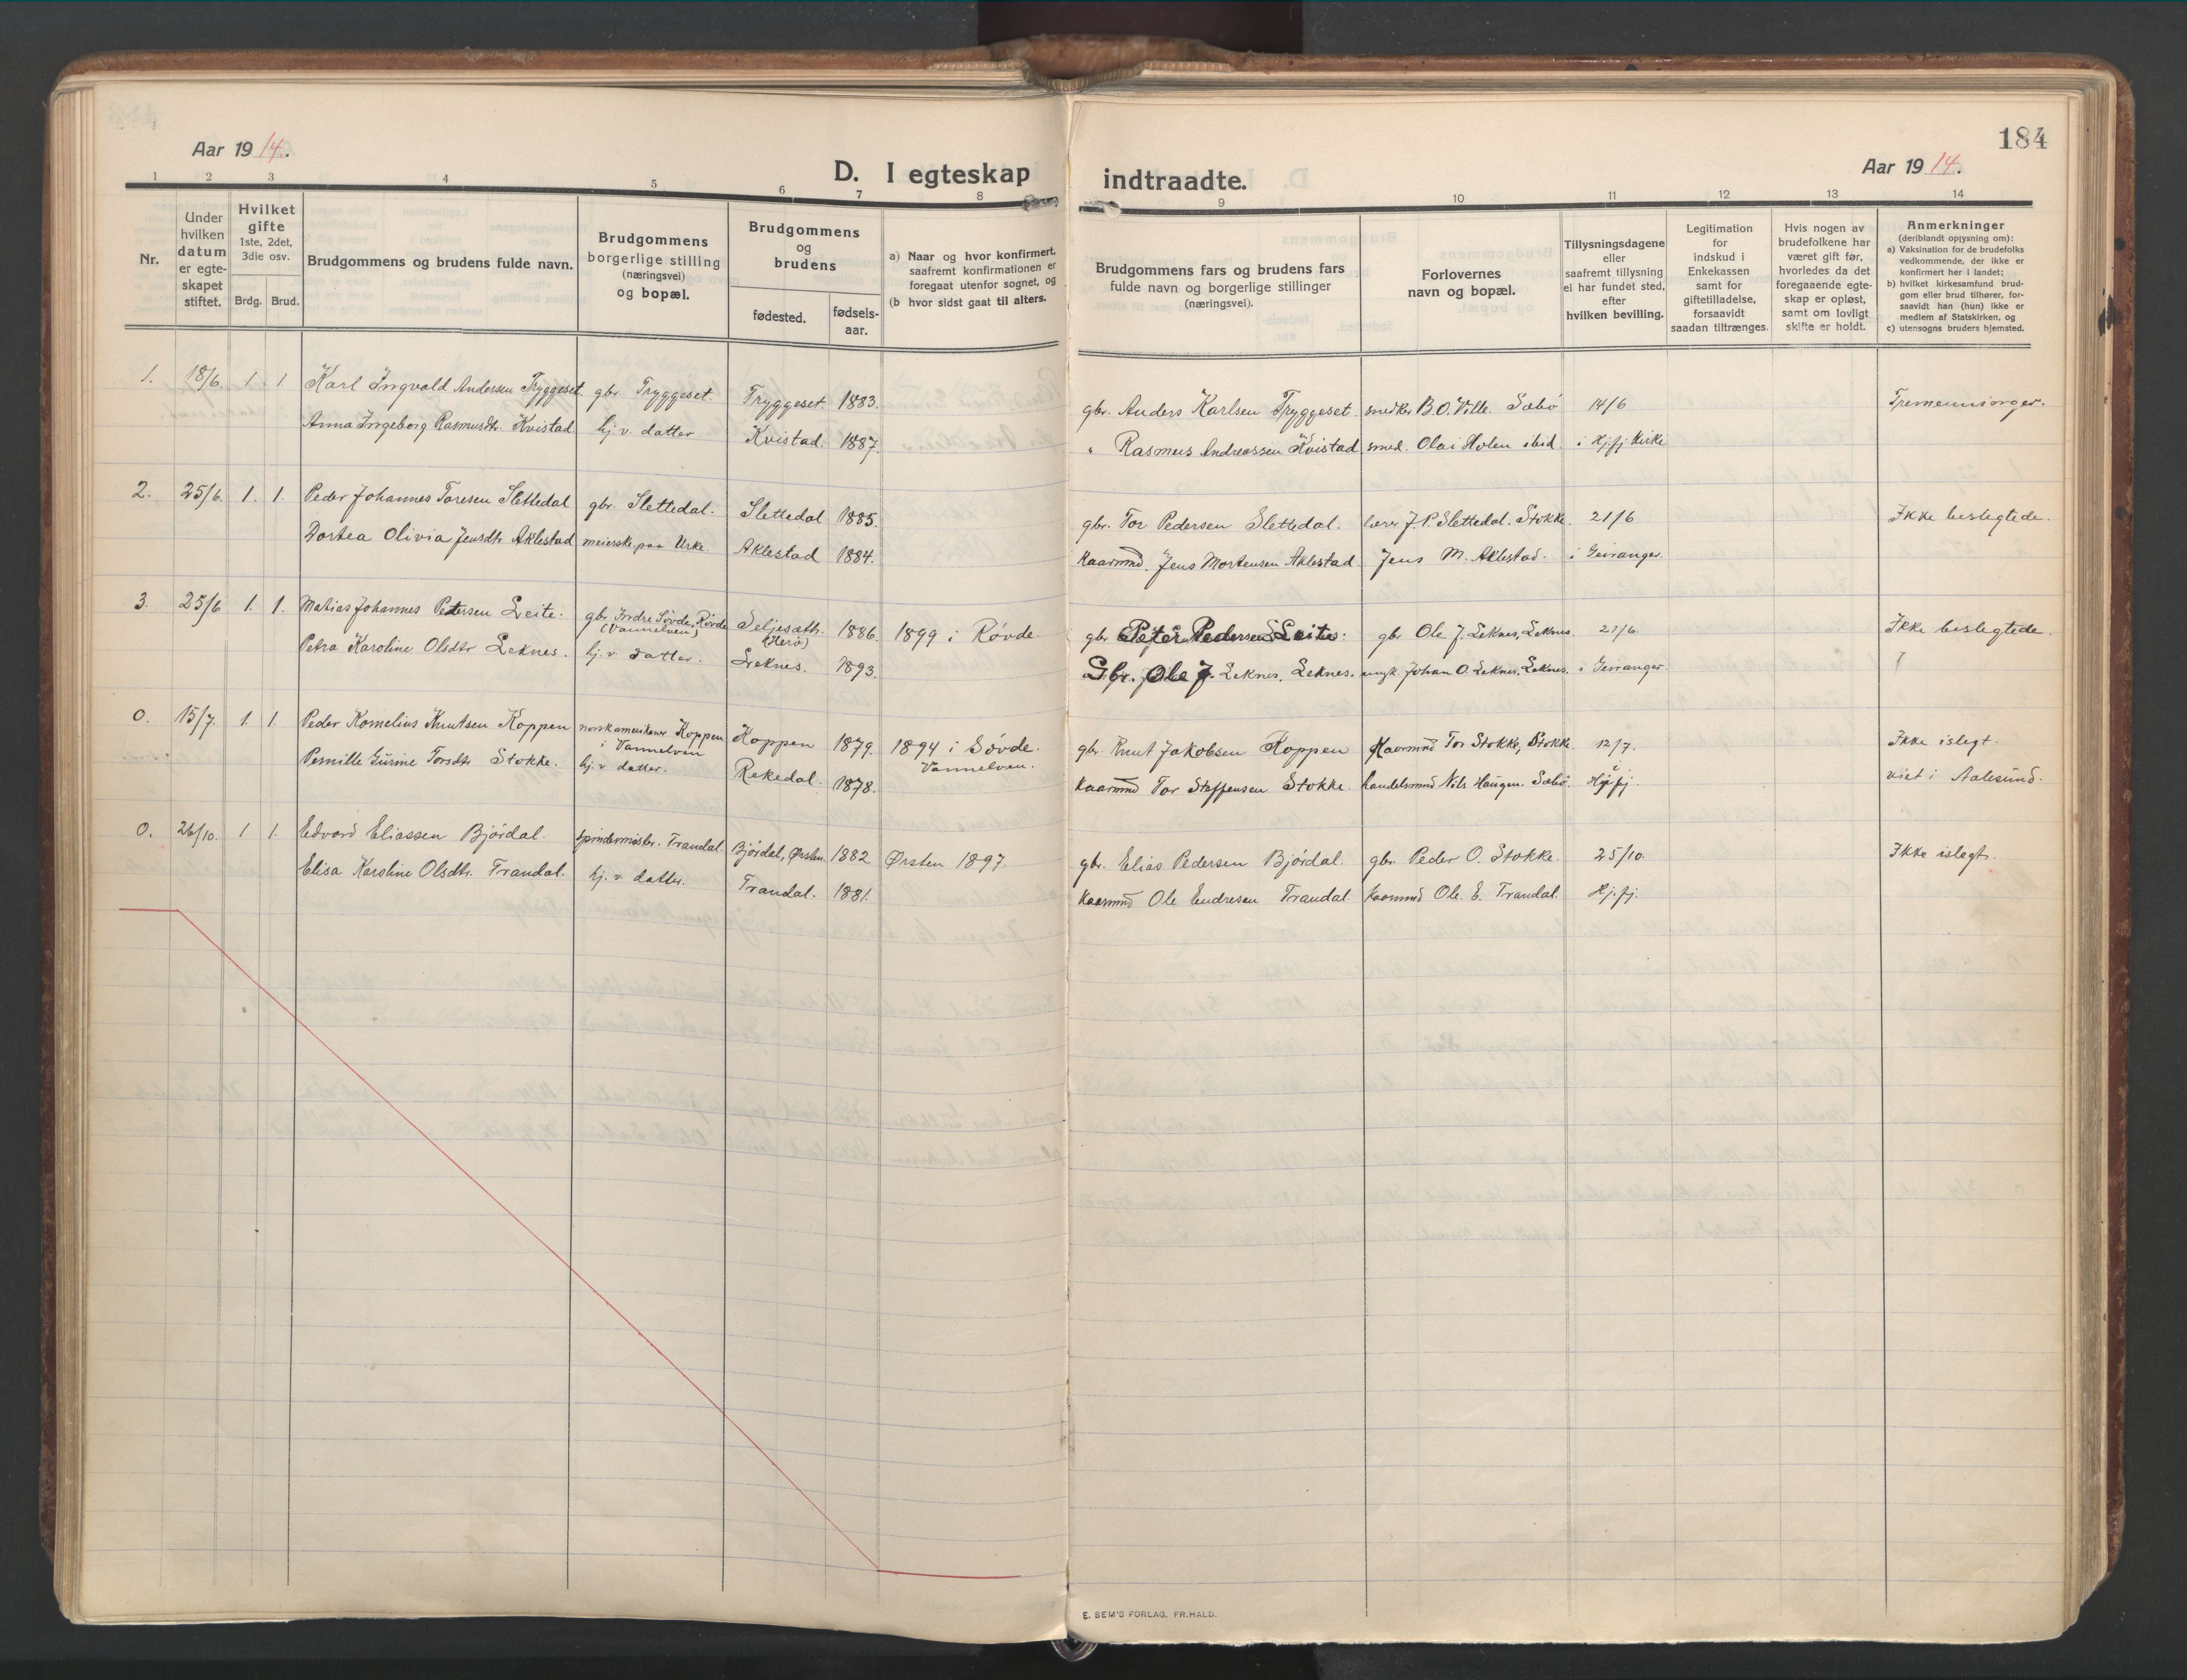 184
Aar 1914.
Aar 1914.
D. I egteskap indtraadte.
1 2 3 4 5 6 7 8 9 10 11 12 13 14
Nr.
Under hvilken datum er egte-skapet stiftet.
Hvilket gifte 1ste, 2det, 3die osv.
Brdg. Brud.
Brudgommens og brudens fulde navn.
Brudgommens borgerlige stilling (næringsvei) og bopæl.
Brudgommens og brudens
fødested. fødsels-aar.
a) Naar og hvor konfirmert, saafremt konfirmationen er foregaat utenfor sognet, og
(b hvor sidst gaat til alters.
Brudgommens fars og brudens fars fulde navn og borgerlige stillinger (næringsvei).
Forlovernes navn og bopæl.
Tillysningsdagene eller saafremt tillysning ei har fundet sted, efter hvilken bevilling.
Legitimation for indskud i Enkekassen samt for giftetilladelse, forsaavidt saadan tiltrænges.
Hvis nogen av brudefolkene har været gift før, hvorledes da det foregaaende egte-skap er opløst, samt om lovligt skifte er holdt.
Anmerkninger (deriblandt opjysning om):
a) Vaksination for de brudefolks vedkommende, der ikke er konfirmert her i landet;
b) hvilket kirkesamfund brud-gom eller brud tilhører, for-saavidt han (hun) ikke er medlem af Statskirken, og
c) utensogns bruders hjemsted.
1. 18/6. 1. 1 Karl Ingvald Andersen Tryggeset. gbr. Tryggeset. Tryggeset 1883. gbr. Anders Karlsen Tryggeset snedker B.O. Ville. Sæbø 14/6 Tremenninger.
Anna Ingeborg Rasmusdtr. Kvistad hj. v. datter. Kvistad. 1887. " Rasmus Andreassen Kvistad smed. Olai Holen ibid. i Hj.fj Kirke
2. 25/6. 1. 1. Peder Johannes Toresen Slettedal gbr. Slettedal. Slettedal 1885. gbr. Tor Pedersen Slettedal. lærer J. P. Slettedal. Stokke. 21/6 Ikke beslegtede.
Dortea Olivia Jensdtr Aklestad meierske paa Urke. Aklestad 1884. Kaarmnd. Jens Mortensen Aklestad Jens M. Aklestad. i Geiranger.
3. 25/6 1. 1. Matias Johannes Petersen Leite. gbr. Indre Søvde, Røvde (Vannelven) Seljesæth. (Herø) 1886. 1899 i Røvde. gbr Peter Pedersen Leite. gbr Ole J. Leknes, Leknes. 21/6. Ikke beslegtede.
Petra Karoline Olsdtr Leknes. hj. v. datter. Leknes. 1893. Gbr. Ole J. Leknes. Leknes. ungk. Johan O. Leknes. Leknes. i Geiranger.
0. 15/7. 1. 1. Peder Kornelius Knutsen Koppen norskamerikaner Koppen i Vannelven Koppen 1879. 1894 i Søvde. Vannelven. gbr. Knut Jakobsen Koppen Kaarmnd Tor Stokke, Stokke 12/7. Ikke islegt.
Pernille Gurine Torsdtr Stokke. hj. v datter. Rekedal. 1878. Kaarmnd Tor Steffensen Stokke. handelsmnd Nils Haugen. Sæbø. i Hj.fj. viet i Aalesund.
0. 26/10. 1 1. Edvard Eliassen Bjørdal. spindermester. Trandal. Bjørdal, Ørsten. 1882 Ørsten 1897. gbr. Elias Pedersen Bjørdal. gbr. Peder O. Stokke. 25/10. Ikke islegt.
Elisa Karoline Olsdtr. Trandal. hj. v. datter. Trandal. 1881. Kaarmnd Ole Endresen Trandal. Kaarmnd Ole. E. Trandal. Hj.fj.
E. SEM'S FORLAG, FR.HALD.